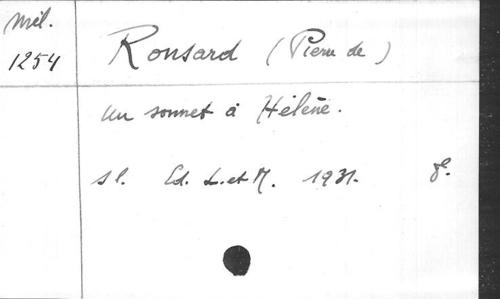 Mél.
1254
Ronsard (Pierre de)
Un sonnet à Hélène.
s l. Ed. L. et M. 1931. 8°.